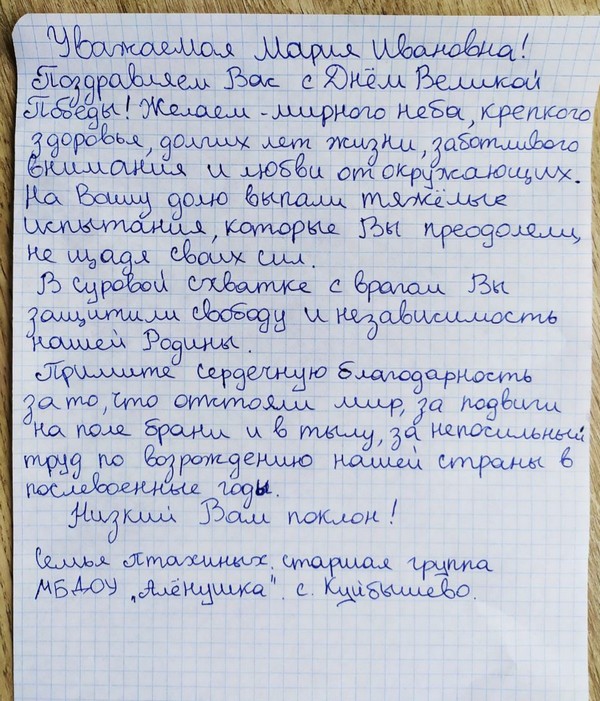 Уважаемая Мария Ивановна!
Поздравляем Вас с Днём Великой
Победы! Желаем - мирного неба, крепкого
здоровья, долгих лет жизни, заботливого
внимания и любви от окружающих.
На Вашу долю выпали тяжёлые
испытания, которые Вы преодолели,
не щадя своих сил.
В суровой схватке с врагом Вы
защитили свободу и независимость
нашей Родины.
Примите сердечную благодарность
за то, что отстояли мир, за подвиги
на поле брани и в тылу, за непосильный
труд по возрождению нашей страны в
послевоенные годы.
Низкий Вам поклон!
Семья Птахиных. старшая группа
МБДОУ „Алёнушка". с. Куйбышево.